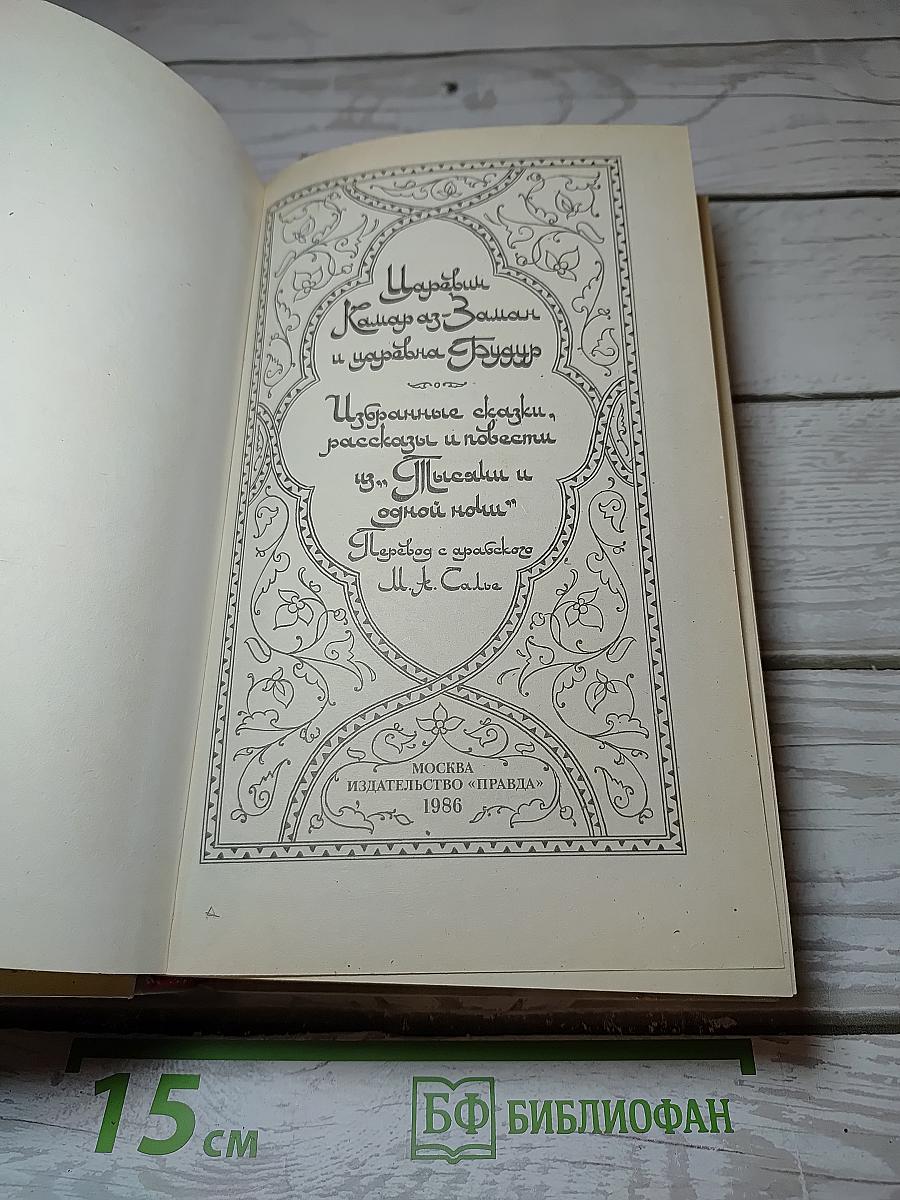 Царевич
Камар аз-Заман
и царевна Будур
Избранные сказки,
рассказы и повести
из „Тысячи и
одной ночи"
Перевод с арабского
М. А. Салье
МОСКВА
ИЗДАТЕЛЬСТВО «ПРАВДА»
1986
15 см
БФ БИБЛИОФАН